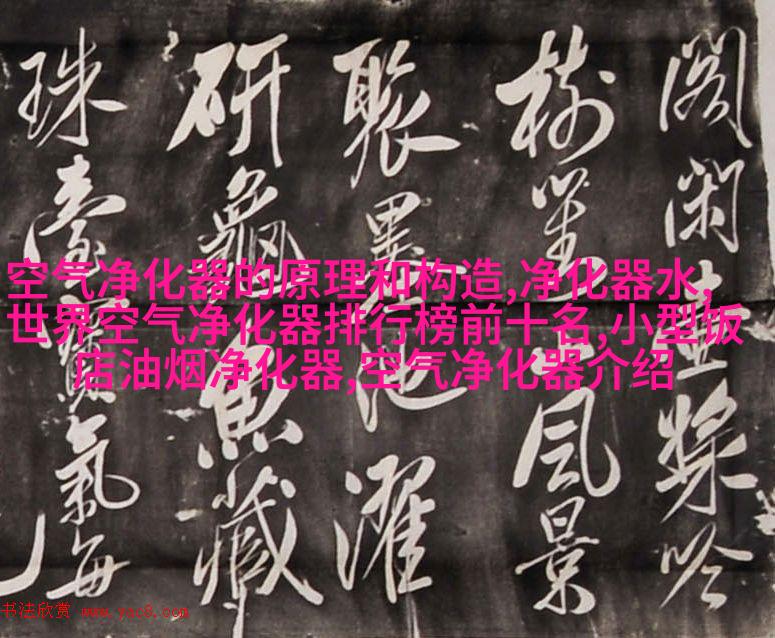 空气净化器的原理和构造,净化器水,
世界空气净化器排行榜前十名,小型饭
店油烟净化器,空气净化器介绍
阁闲吟
树风景
墨池濯
研魚藏
珠臺寶氣每
书法欣赏 www.yac8.com